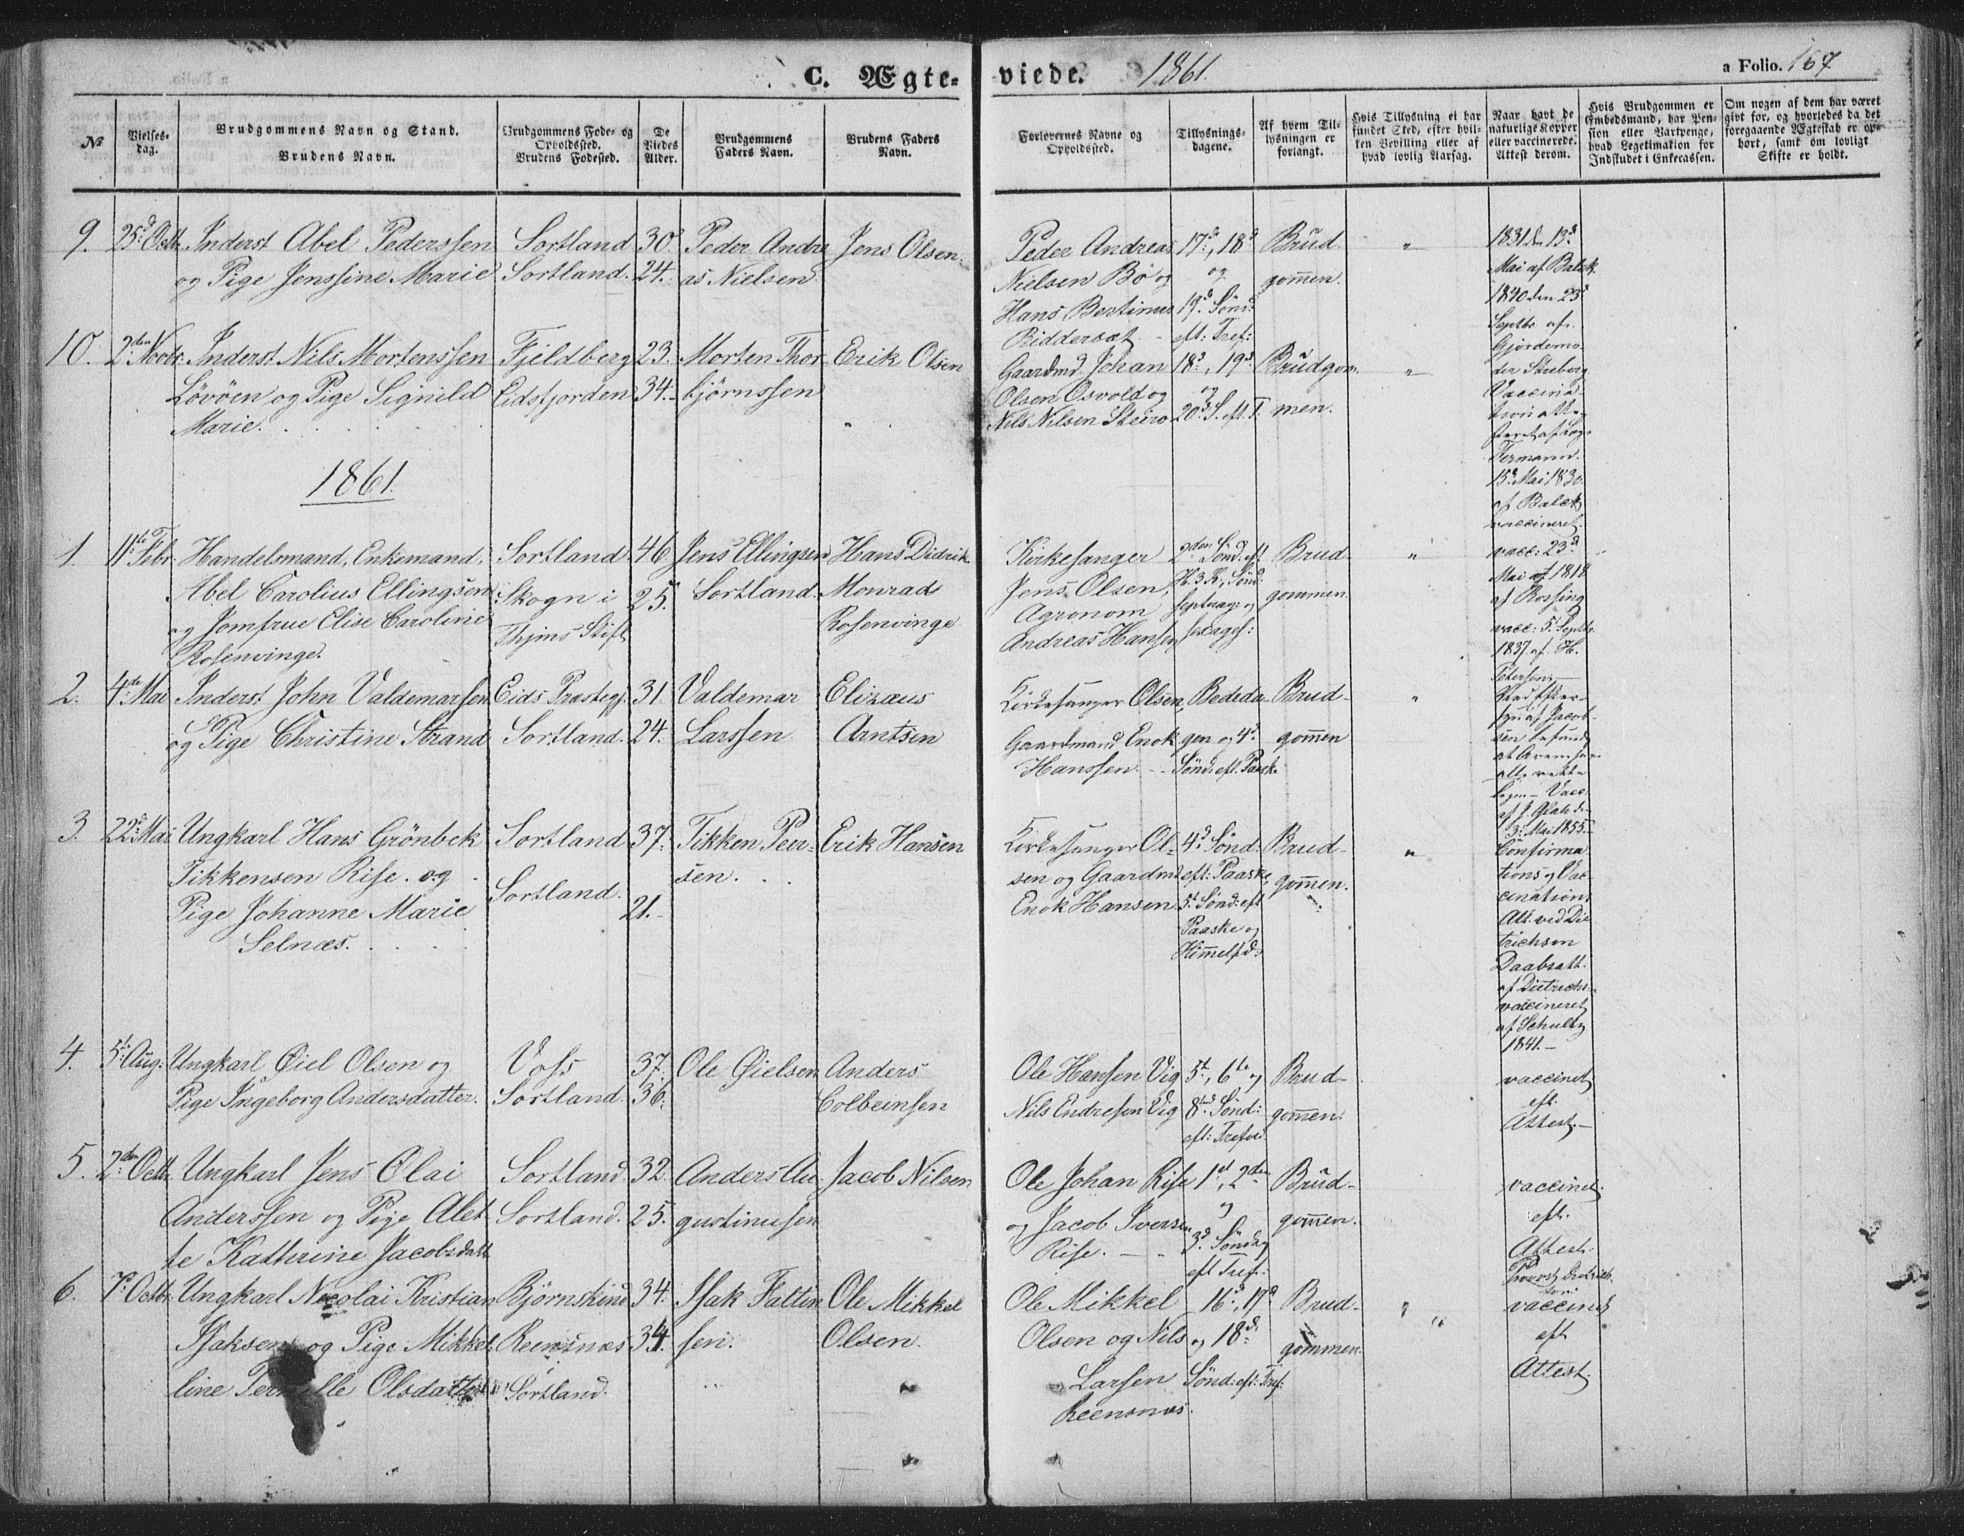 C. Ægte- viede. 1861. a Folio. 167
№
Vielses-
dag.
Brudgommens Navn og Stand.
Brudens Navn.
Brudgommens Føde- og
Opholdssted.
Brudens Fødested.
De
Viedes
Alder.
Brudgommens
Faders Navn.
Brudens Faders
Navn.
Forlovernes Navne og
Opholdssted.
Tillysnings-
dagene.
Af hvem Til-
lysningen er
forlangt.
Hvis Tillysning ei har
fundet Sted, efter hvil-
ken Bevilling eller af
hvad lovlig Aarsag.
Naar havt de
naturlige Kopper
eller vaccinerede.
Attest derom.
Hvis Brudgommen er
Embedsmand, har Pen-
sion eller Vartpenge,
hvad Legitimation for
Indskudet i Enkecassen.
Om nogen af dem har været
gift før, og hvorledes da det
foregaaende Ægteskab er op-
hørt, samt om lovligt
Skifte er holdt.
9.
25d Octb
Inderst Abel Pederssen
og Pige Jenssine Marie
Sortland
Sortland.
30.
24.
Peder Andre
as Nielsen
Jens Olsen.
Peder Andreas
Nielsen Bø og
Hans Bertinus
Riddersæt.
17d, 18d
og
19d Sønd:
eft: Tref:
Brud
gommen.
"
1831 den 13d
Mai af Balck.
1840 den 23d
Septbr af
10.
2den Novbr.
Inderst Nils Mortenssen
Løvøen og Pige Signild
Marie.
Fjeldberg
Eidsfjorden
23.
34.
Morten Thor
bjørnssen
Erik Olsen
"
Gaardmd Johan
Olsen Osvold og
Nils Nilsen Steiro
18d, 19d
og
20d S. eft T.
Brudgom-
men.
"
Vaccina-
15d Mai 1830.
af Balck
vaccineret.
1861.
1.
11te Febr.
Handelsmand, Enkemand,
Abel Carolius Ellingsen
og Jomfrue Elise Caroline
Rosenvinge.
Sortland
Skogn i
Thjms Stift
46
25.
Jens Ellingsen
Sortland.
Hans Didrik
Monrad
Rosenvinge
Kirkesanger
Jens Olsen,
Agronom
Andreas Hansen
2den Sønd: eft
H. 3 K., Sønd:
Septuag: og
sexages:
Brud-
gommen.
"
vacc: 23d
Mai 1818
af Rossing
vacc: 5. Septbr
1837 af H.
Petersen.
2.
4de Mai
Inderst John Valdemarsen
og Pige Christine Strand
Eids Præstegj.
Sortland.
31.
24.
Valdemar
Larssen
Elizæus
Arntsen
Kirkesanger Olsen,
Gaardmand Enok
Hanssen.
Bededa-
gen og 4d
Sønd: eft. Paaske
Brud-
gommen
"
3d Mai 1855.
3.
22d Mai
Ungkarl Hans Grönbek
Tikkensen Rise og
Pige Johanne Marie
Selnæs.
Sortland
Sortland.
37.
21.
Tikken Peer-
sen.
Erik Hansen
Kirkesanger Ol-
sen og Gaardmd
Enok Hansen
4d Sønd:
eft: Paaske,
5t Sønd: eft
Paaske og
Himmelfd:
Brud-
gommen.
"
Confirma
tions og Vac
cinations
Att. ved Die
trichsen
Daabsatt.
af Dietrichs.
vaccineret
af Schultz
1841.
4.
5t Aug:
Ungkarl Øiel Olsen og
Pige Ingeborg Andersdatter.
Voss
Sortland.
37.
36.
Ole Øielsen
Anders
Colbeinsen
Ole Hansen Vig
Nils Endresen Vig
5t, 6te og
8nd Sønd:
eft: Trefd.
Brud-
gommen.
vaccinet
eft.
Attest.
5.
2den Octb.
Ungkarl Jens Olai
Anderssen og Pige Alet-
te Kathrine Jacobsdatt
Sortland
Sortland.
32.
25.
Anders Au
gustinusen
Jacob Nilsen
Ole Johan Rise
og Jacob Iversen
Rise.
1st, 2den
og
3d Søndag
eft Tref:
Brud-
gommen.
vaccinet.
eft.
Attest.
6.
7d Octb.
Ungkarl Nicolai Kristian
Isaksen og Pige Mikkel
line Pernelle Olsdatter
Björnskind
Reensnæs
i Sortland.
34.
34.
Isak Fattin
sen.
Ole Mikkel
Olsen.
Ole Mikkel
Olsen og Nils
Larsen
Reensnæs.
16d, 17d
og 18d
Sønd: eft: Tref:
Brud-
gommen.
"
vaccinet
eft
Attest.